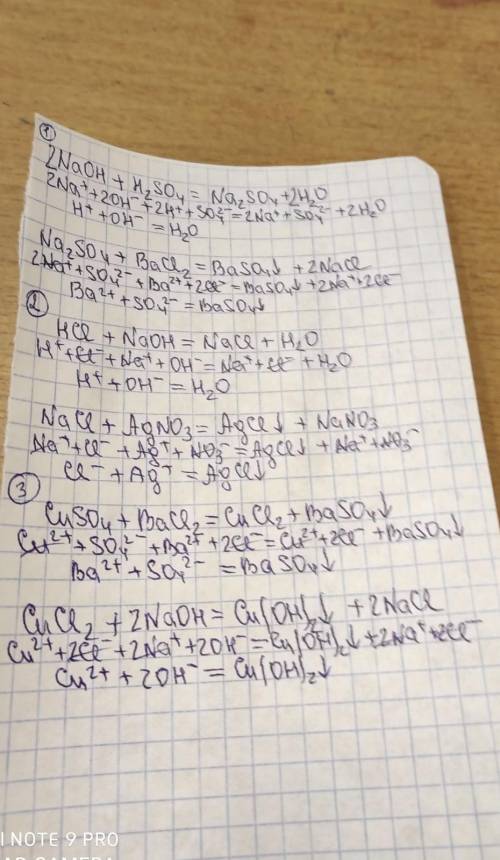 ①
2NaOH + H₂SO₄ = Na₂SO₄ + 2H₂O
2Na⁺ + 2OH⁻ + 2H⁺ + SO₄²⁻ = 2Na⁺ + SO₄²⁻ + 2H₂O
H⁺ + OH⁻ = H₂O
Na₂SO₄ + BaCl₂ = BaSO₄↓ + 2NaCl
2Na⁺ + SO₄²⁻ + Ba²⁺ + 2Cl⁻ = BaSO₄↓ + 2Na⁺ + 2Cl⁻
Ba²⁺ + SO₄²⁻ = BaSO₄↓
②
HCl + NaOH = NaCl + H₂O
H⁺ + Cl⁻ + Na⁺ + OH⁻ = Na⁺ + Cl⁻ + H₂O
H⁺ + OH⁻ = H₂O
NaCl + AgNO₃ = AgCl↓ + NaNO₃
Na⁺ + Cl⁻ + Ag⁺ + NO₃⁻ = AgCl↓ + Na⁺ + NO₃⁻
Cl⁻ + Ag⁺ = AgCl↓
③
CuSO₄ + BaCl₂ = CuCl₂ + BaSO₄↓
Cu²⁺ + SO₄²⁻ + Ba²⁺ + 2Cl⁻ = Cu²⁺ + 2Cl⁻ + BaSO₄↓
Ba²⁺ + SO₄²⁻ = BaSO₄↓
CuCl₂ + 2NaOH = Cu(OH)₂↓ + 2NaCl
Cu²⁺ + 2Cl⁻ + 2Na⁺ + 2OH⁻ = Cu(OH)₂↓ + 2Na⁺ + 2Cl⁻
Cu²⁺ + 2OH⁻ = Cu(OH)₂↓
I NOTE 9 PRO
AD CAMERA